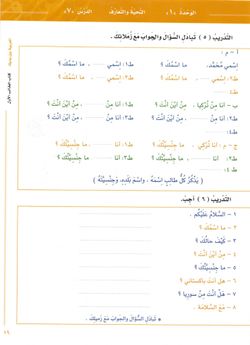 الوَحْدَةُ «١» التَّحِيَّةُ والتَّعَارُف الدَّرْسُ «٧»
التَّدْرِيبُ ( ٥ ) تَبَادَلِ السُّؤَالَ والجَوَابَ مَعَ زُمَلائِكَ .
أ - م :
اِسْمِي مُحَمَّد، مَا اسْمُكَ ؟ ط١: اِسْمِي ... . مَا اسْمُكَ ؟
ط٢: اِسْمِي ... . مَا اسْمُكَ ؟ ط٣: اِسْمِي ... . مَا اسْمُكَ ؟
ط٤:
ب - م:
أنَا مِنْ تُرْكِيَا . مِنْ أَيْنَ أَنْتَ ؟ ط١: أنَا مِنْ ... . مِنْ أَيْنَ أَنْتَ ؟
ط٢: أنَا مِنْ ... . مِنْ أَيْنَ أَنْتَ ؟ ط٣: أنَا مِنْ ... . مِنْ أَيْنَ أَنْتَ ؟
ط٤:
ج - م:
أنَا تُرْكِيّ . مَا جِنْسِيَّتُكَ ؟ ط١: أنَا ... . مَا جِنْسِيَّتُكَ ؟
ط٢: أنَا ... . مَا جِنْسِيَّتُكَ ؟ ط٣: أنَا ... . مَا جِنْسِيَّتُكَ ؟
ط٤:
( يَذْكُرُ كُلُّ طَالِبٍ اسْمَهُ ، وَاسْمَ بَلَدِهِ، وَجِنْسِيَّتَهُ )
التَّدْرِيبُ ( ٦ ) أَجِبْ.
١ - السَّلامُ عَلَيْكُمْ .
٢ - مَا اسْمُكَ ؟
٣ - كَيْفَ حَالُكَ ؟
٤ - مِنْ أَيْنَ أَنْتَ ؟
٥ - مَا جِنْسِيَّتُكَ ؟
٦ - هَلْ أَنْتَ بَاكِسْتَانِيّ ؟
٧ - هَلْ أَنْتَ مِنْ سُورِيَا ؟
٨ - مَعَ السَّلامَة .
* تَبَادَلِ السُّؤَالَ والجَوَابَ مَعَ زَمِيلِكَ .
١٩